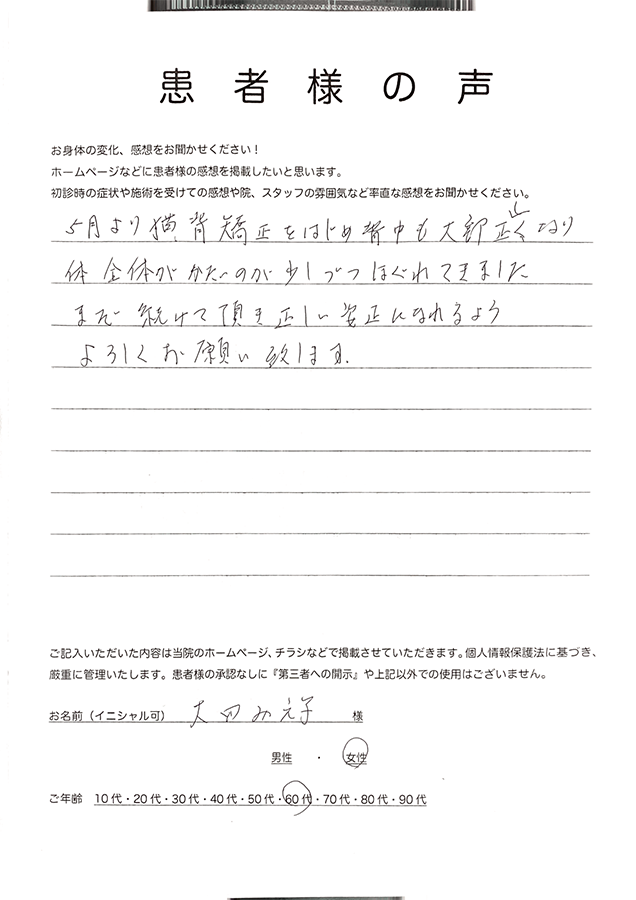 患者様の声
お身体の変化、感想をお聞かせください！
ホームページなどに患者様の感想を掲載したいと思います。
初診時の症状や施術を受けての感想や院、スタッフの雰囲気など率直な感想をお聞かせください。
5月より猫背矯正をはじめ背中も大部正しくなり
体全体がかたいのが少しづつほぐれてきました
まだ続けて頂き正しい姿正になれるよう
よろしくお願い致します.
ご記入いただいた内容は当院のホームページ、チラシなどで掲載させていただきます。個人情報保護法に基づき、
厳重に管理いたします。患者様の承認なしに『第三者への開示』や上記以外での使用はございません。
お名前（イニシャル可） 子 様
男性 ・ 女性
ご年齢 10代・20代・30代・40代・50代・60代・70代・80代・90代